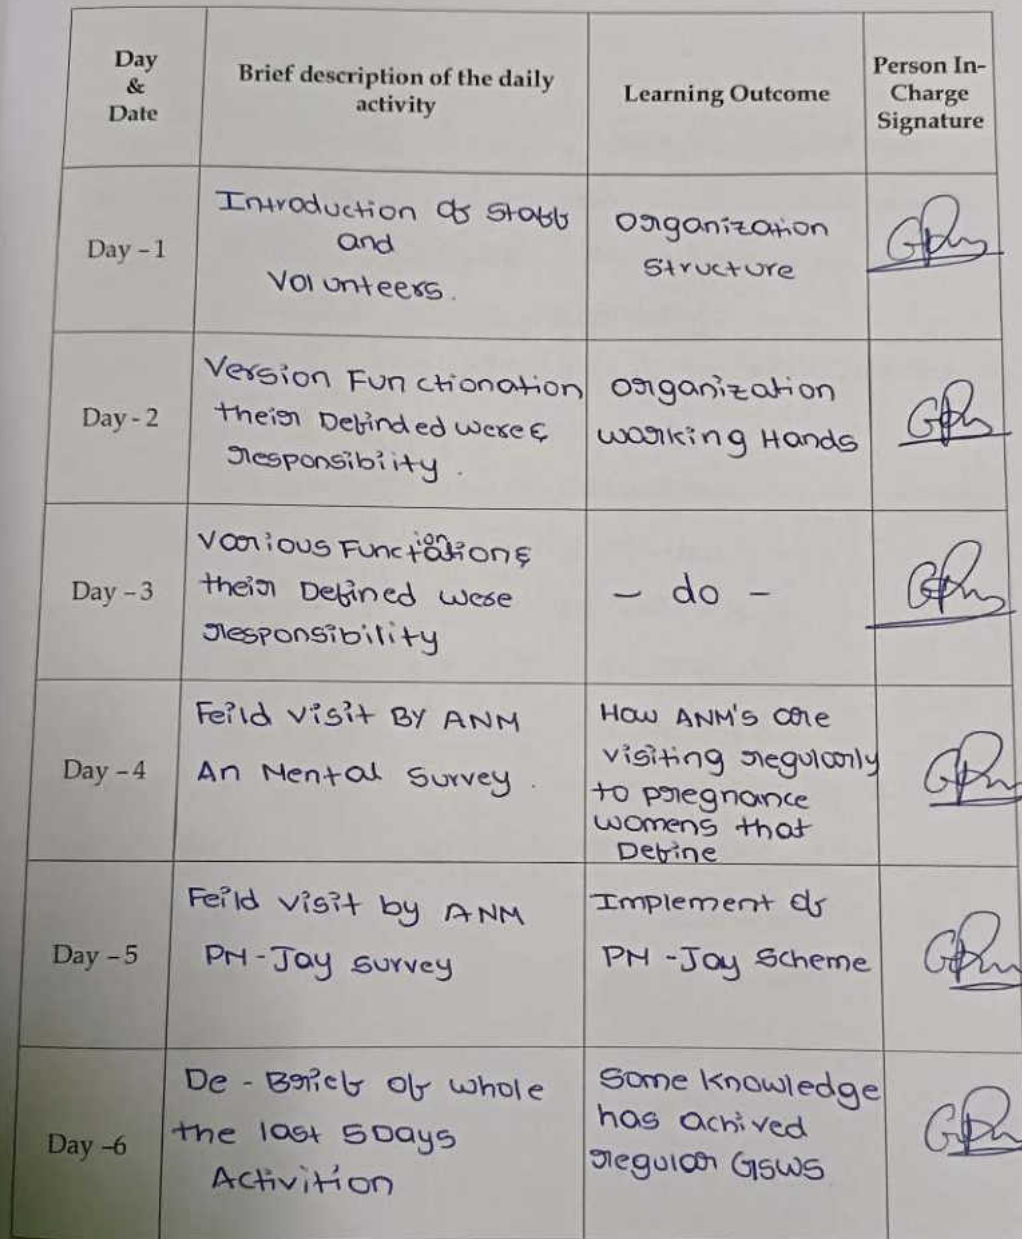 Day
&
Date
Brief description of the daily
activity
Learning Outcome
Person In-
Charge
Signature
Day - 1
Introduction of Staff
and
Volunteers.
Organization
Structure
Day - 2
Version Functionation
their Definded were &
responsibiity.
organization
working Hands
Day - 3
Various Function &
their Defined were
responsibility
- do -
Day - 4
Feild visit BY ANM
An Mental Survey.
How ANM's are
visiting regularly
to pregnance
womens that
Define
Day - 5
Feild visit by ANM
PM-Jay survey
Implement of
PM-Jay Scheme
Day -6
De-Brief of whole
the last 5Days
Activition
Some knowledge
has achived
regular GSWS